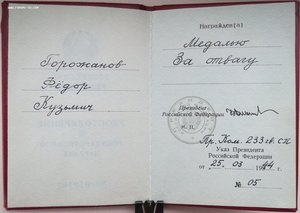 Горожанов
Фёдор
Кузьмич
Награжден(а)
Медалью
За отвагу
Президент
Российской Федерации
М. П.
Пр. Ком. 233 гв. СП
Указ Президента
Российской Федерации
от 25. 03 1944 г.
№ 05